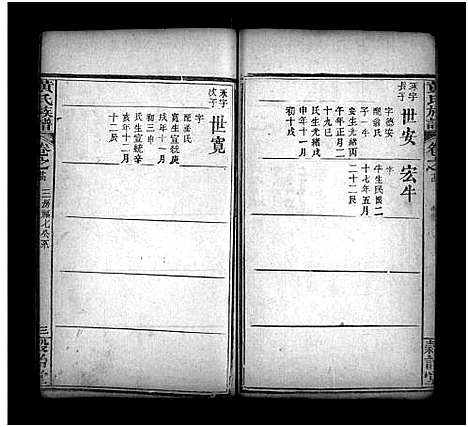 黃氏族譜
卷之
禾字
長子
世安
宏牛
字德安
配翁氏
子一牛
安生光緒丙
午年正月二
十九巳
氏生光緒戊
申年十一月
初十戌
牛生民國二
十七年五月
二十二辰
禾字
次子
世寬
字
配巫氏
寬生宣統庚
戌年十一月
初三申
氏生宣統辛
亥年十二月
十二辰
黃氏族譜
卷之
三